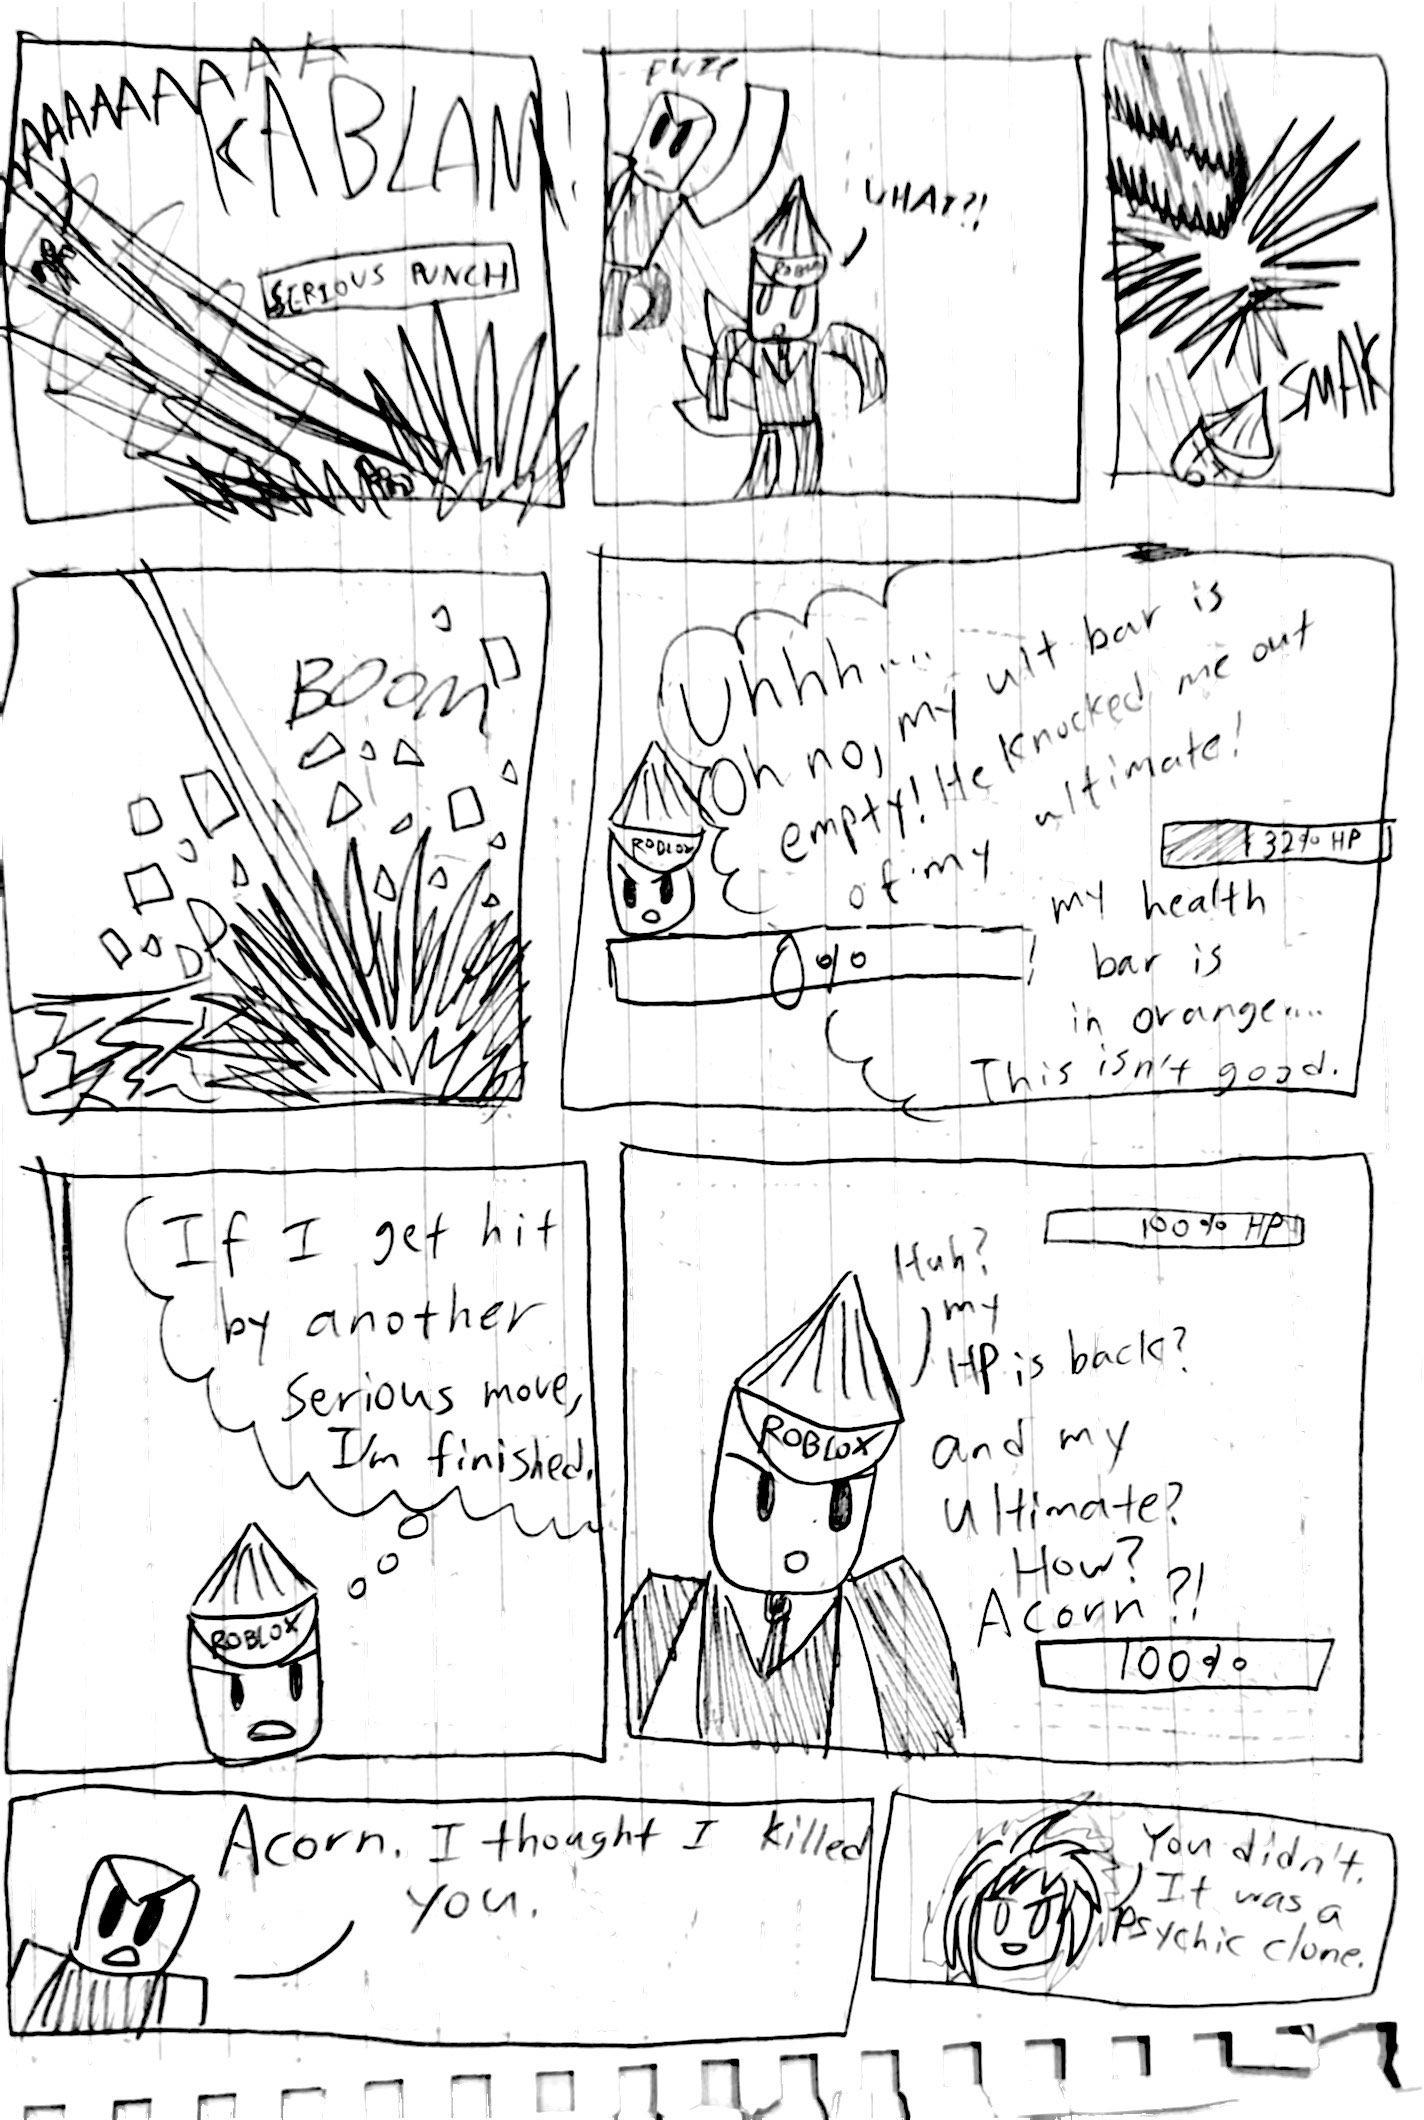 AAAAAAAAAAA
KABLAM!
SERIOUS PUNCH
WHAT?!
ROBLOX
SMAK
BOOM
Uhhh....
Oh no, my ult bar is
empty! He knocked me out
of my ultimate!
ROBLOX
32% HP
0%
my health
bar is
in orange....
This isn't good.
If I get hit
by another
Serious move,
I'm finished.
ROBLOX
100% HP
Huh?
my
HP is back?
and my
Ultimate?
How?
Acorn?!
ROBLOX
100%
Acorn. I thought I killed
you.
You didn't.
It was a
Psychic clone.